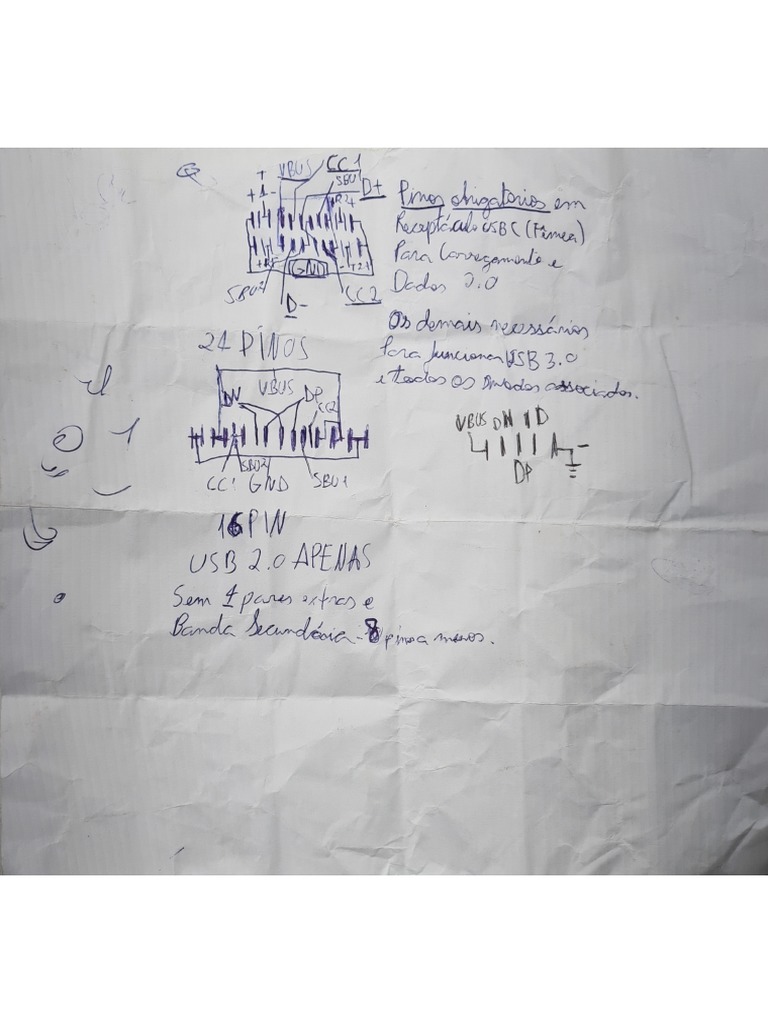 VBUS CC1
SBU1
D+
+1-
GND
SBU2
D-
CC2
Pinos obrigatorios em
Receptáculo USBC (Fêmea)
Para Carregamento e
Dados 2.0
Os demais necessários
Para funcionar USB 3.0
e todos os modos associados.
24 PINOS
VBUS
DN DP
CC2
SBU2
CC1 GND SBU1
VBUS DN ID
DP
16PIN
USB 2.0 APENAS
Sem 4 pares extras e
Banda Secundária - 8 pinos a menos.